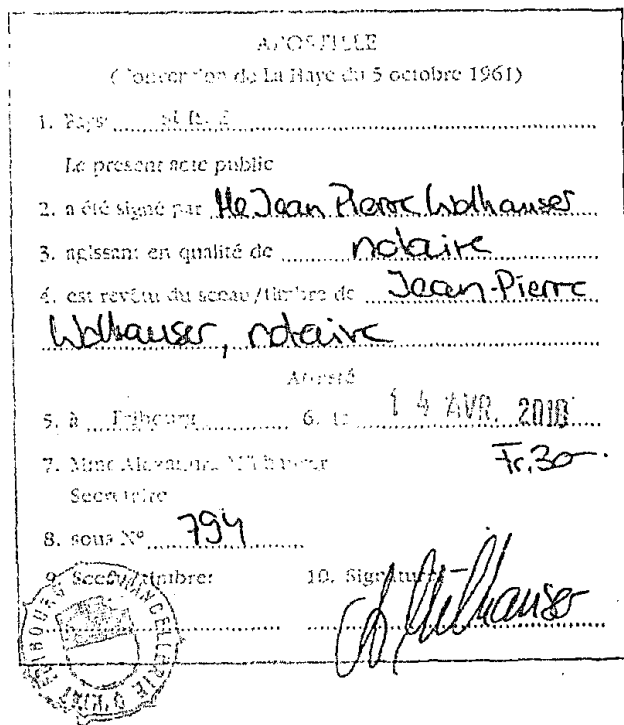 APOSTILLE
(Convention de La Haye du 5 octobre 1961)
1. Pays:
Le présent acte public
2. a été signé par Me Jean Pierre Wolhauser
3. agissant en qualité de notaire
4. est revêtu du sceau/timbre de Jean-Pierre
Wolhauser, notaire
Attesté
5. à Fribourg 6. le 14 AVR. 2010
7. Mme Alexandra
Fr.30.-
Secrétaire
8. sous Nº 794
9. Sceau/timbre: 10. Signature:
FRIBOURG CHANCELLERIE D'ETAT